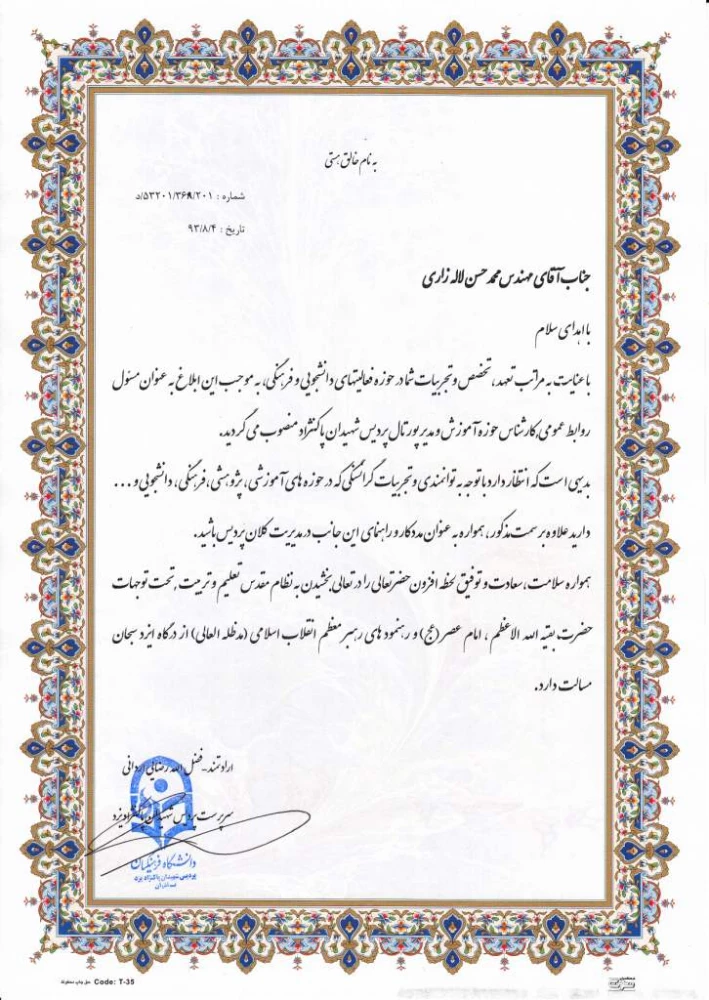 به نام خالق هستی
شماره : ۵۳۲۰۱/۳۶۹/۲۰۱/د
تاریخ : ۹۳/۸/۴
جناب آقای مهندس محمد حسن لاله زاری
با اهدای سلام
با عنایت به مراتب تعهد، تخصص و تجربیات شما در حوزه فعالیتهای دانشجویی و فرهنگی، به موجب این ابلاغ به عنوان مسئول
روابط عمومی، کارشناس حوزه آموزش و مدیر پورتال پردیس شهیدان پاکنژاد منصوب می گردید.
بدیهی است که انتظار دارد با توجه به توانمندی و تجربیات گرانسنگی که در حوزه های آموزشی، پژوهشی، فرهنگی، دانشجویی و ...
دارید علاوه بر سمت مذکور، همواره به عنوان مددکار و راهنمای این جانب در مدیریت کلان پردیس باشید.
همواره سلامت، سعادت و توفیق لحظه افزون حضرتعالی را در تعالی بخشیدن به نظام مقدس تعلیم و تربیت، تحت توجهات
حضرت بقیه الله الاعظم ، امام عصر (عج) و رهنمود های رهبر معظم انقلاب اسلامی (مدظله العالی) از درگاه ایزد سبحان
مسالت دارد.
ارادتمند - فضل الله رضائی اردانی
سرپرست پردیس شهیدان پاکنژاد یزد
دانشگاه فرهنگیان
پردیس شهیدان پاکنژاد یزد
Code: T-35